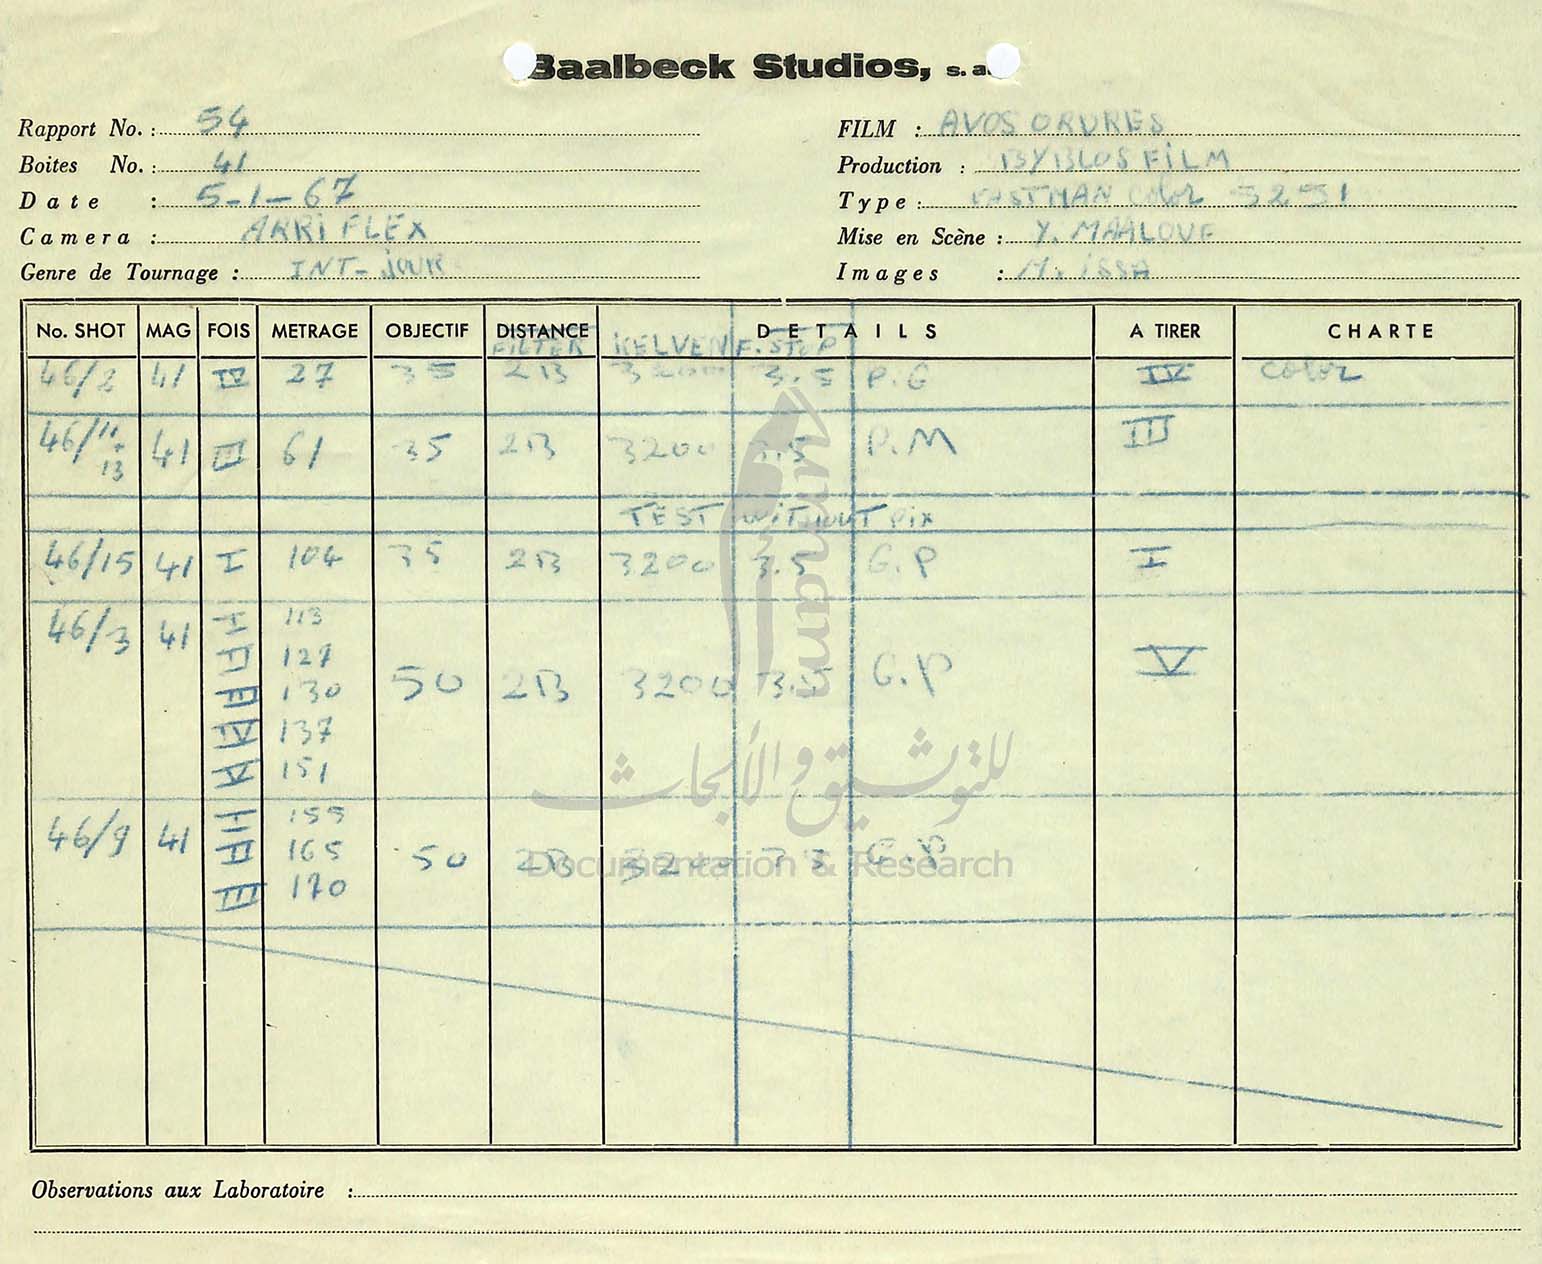 Baalbeck Studios, s. a.
Rapport No. : 54
FILM : AVOS ORDRES
Boites No. : 41
Production : BYBLOS FILM
Date : 5-1-67
Type : EASTMAN COLOR 5251
Camera : ARRI FLEX
Mise en Scène : Y. MAALOUF
Genre de Tournage : INT- jOUR
Images : M. iSSA
No. SHOT MAG FOIS METRAGE OBJECTIF DISTANCE DETAILS A TIRER CHARTE
FILTER KELVEN F. STOP
46/2 41 IV 27 35 2B 3200 3.5 P.G IV COLOR
46/11+13 41 III 61 35 2B 3200 3.5 P.M III
TEST WITHOUT Pix
46/15 41 I 104 35 2B 3200 3.5 G.P I
46/3 41 I 113
II 127
III 130 50 2B 3200 3.5 G.P V
IV 137
V 151
46/9 41 I 155
II 165 50 2B 3200 3.5 G.P
III 170
Observations aux Laboratoire :
Umam
للتوثيق والأبحاث
Documentation & Research